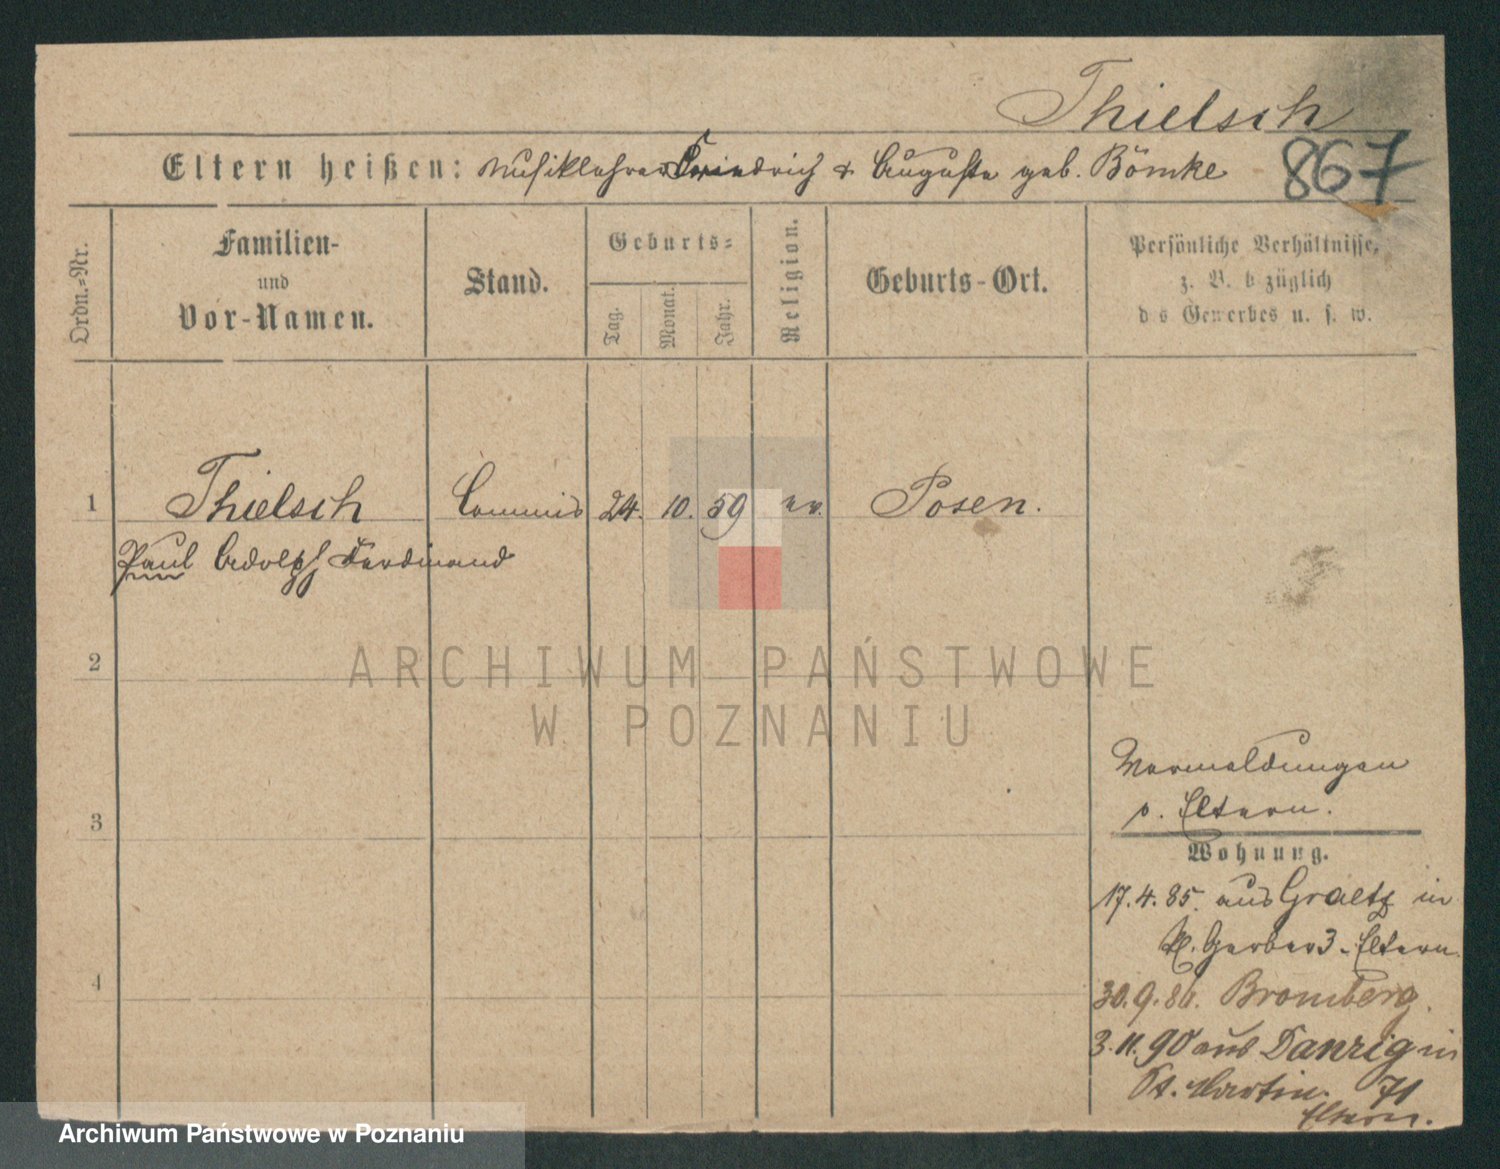 Thielsch
Eltern heißen: Musiklehrer Friedrich & Auguste geb. Bömke
867
Ordn.=Nr.
Familien-
und
Vor-Namen.
Stand.
Geburts=
Tag.
Monat.
Jahr.
Religion.
Geburts-Ort.
Persönliche Verhältnisse,
z. B. b züglich
d s Gewerbes u. s. w.
1 Thielsch Commis 24. 10. 59 ev. Posen.
Paul Adolph Ferdinand
2
ARCHIWUM PAŃSTWOWE
W POZNANIU
Vormeldungen
s. Eltern.
3
Wohnung.
17.4.85. aus Graetz in
Kl. Gerber 3 - Eltern
4
30.9.86. Bromberg.
3.11.90 aus Danzig in
St. Martin. 71
Eltern.
Archiwum Państwowe w Poznaniu